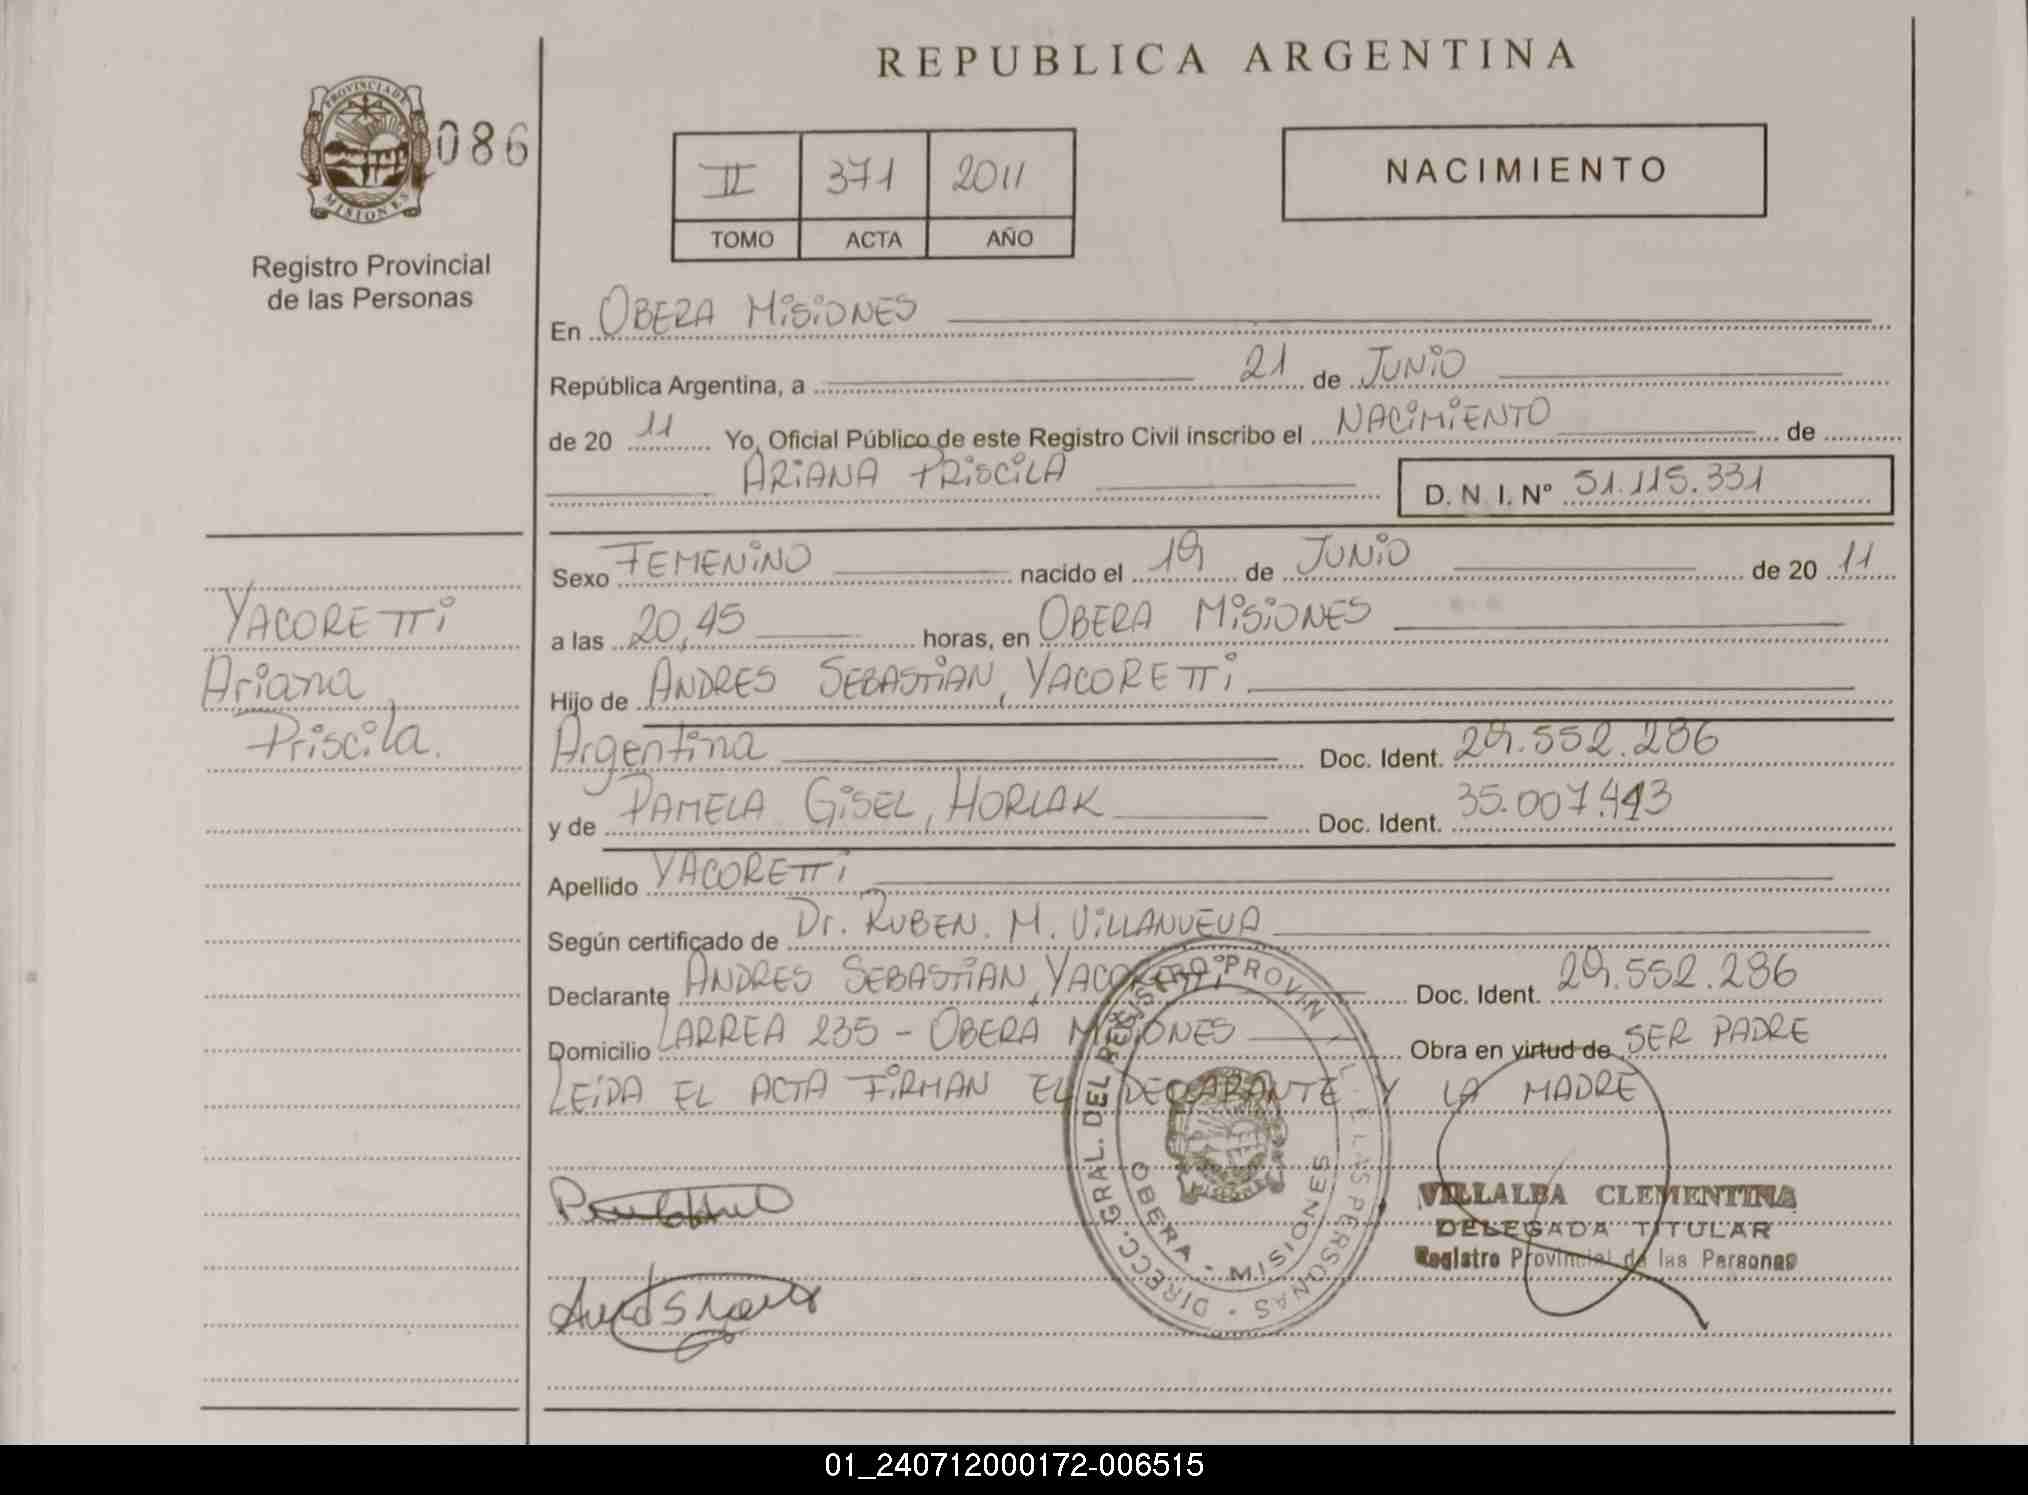 REPUBLICA ARGENTINA
PROVINCIA DE
MISIONES
086
Registro Provincial
de las Personas
II 371 2011
TOMO ACTA AÑO
NACIMIENTO
En OBERA MISIONES
República Argentina, a 21 de JUNIO
de 20 11 Yo, Oficial Público de este Registro Civil inscribo el NACIMIENTO de
ARIANA PRISCILA D. N. I. Nº 51.115.331
Sexo FEMENINO nacido el 19 de JUNIO de 20 11
a las 20,45 horas, en OBERA MISIONES
Hijo de ANDRES SEBASTIAN, YACORETTI
Argentina Doc. Ident. 29.552.286
y de PAMELA GISEL, HORLAK Doc. Ident. 35.007.443
Apellido YACORETTI
Según certificado de Dr. RUBEN. M. VILLANUEVA
Declarante ANDRES SEBASTIAN, YACORETTI Doc. Ident. 29.552.286
Domicilio LARREA 235 - OBERA MISIONES Obra en virtud de SER PADRE
LEIDA EL ACTA FIRMAN EL DECLARANTE Y LA MADRE
YACORETTI
Ariana
Priscila.
DIRECC. GRAL. DEL REGISTRO PROVIN L E LAS PERSONAS
OBERA - MISIONES
VILLALBA CLEMENTINA
DELEGADA TITULAR
Registro Provincial de las Personas
01_240712000172-006515